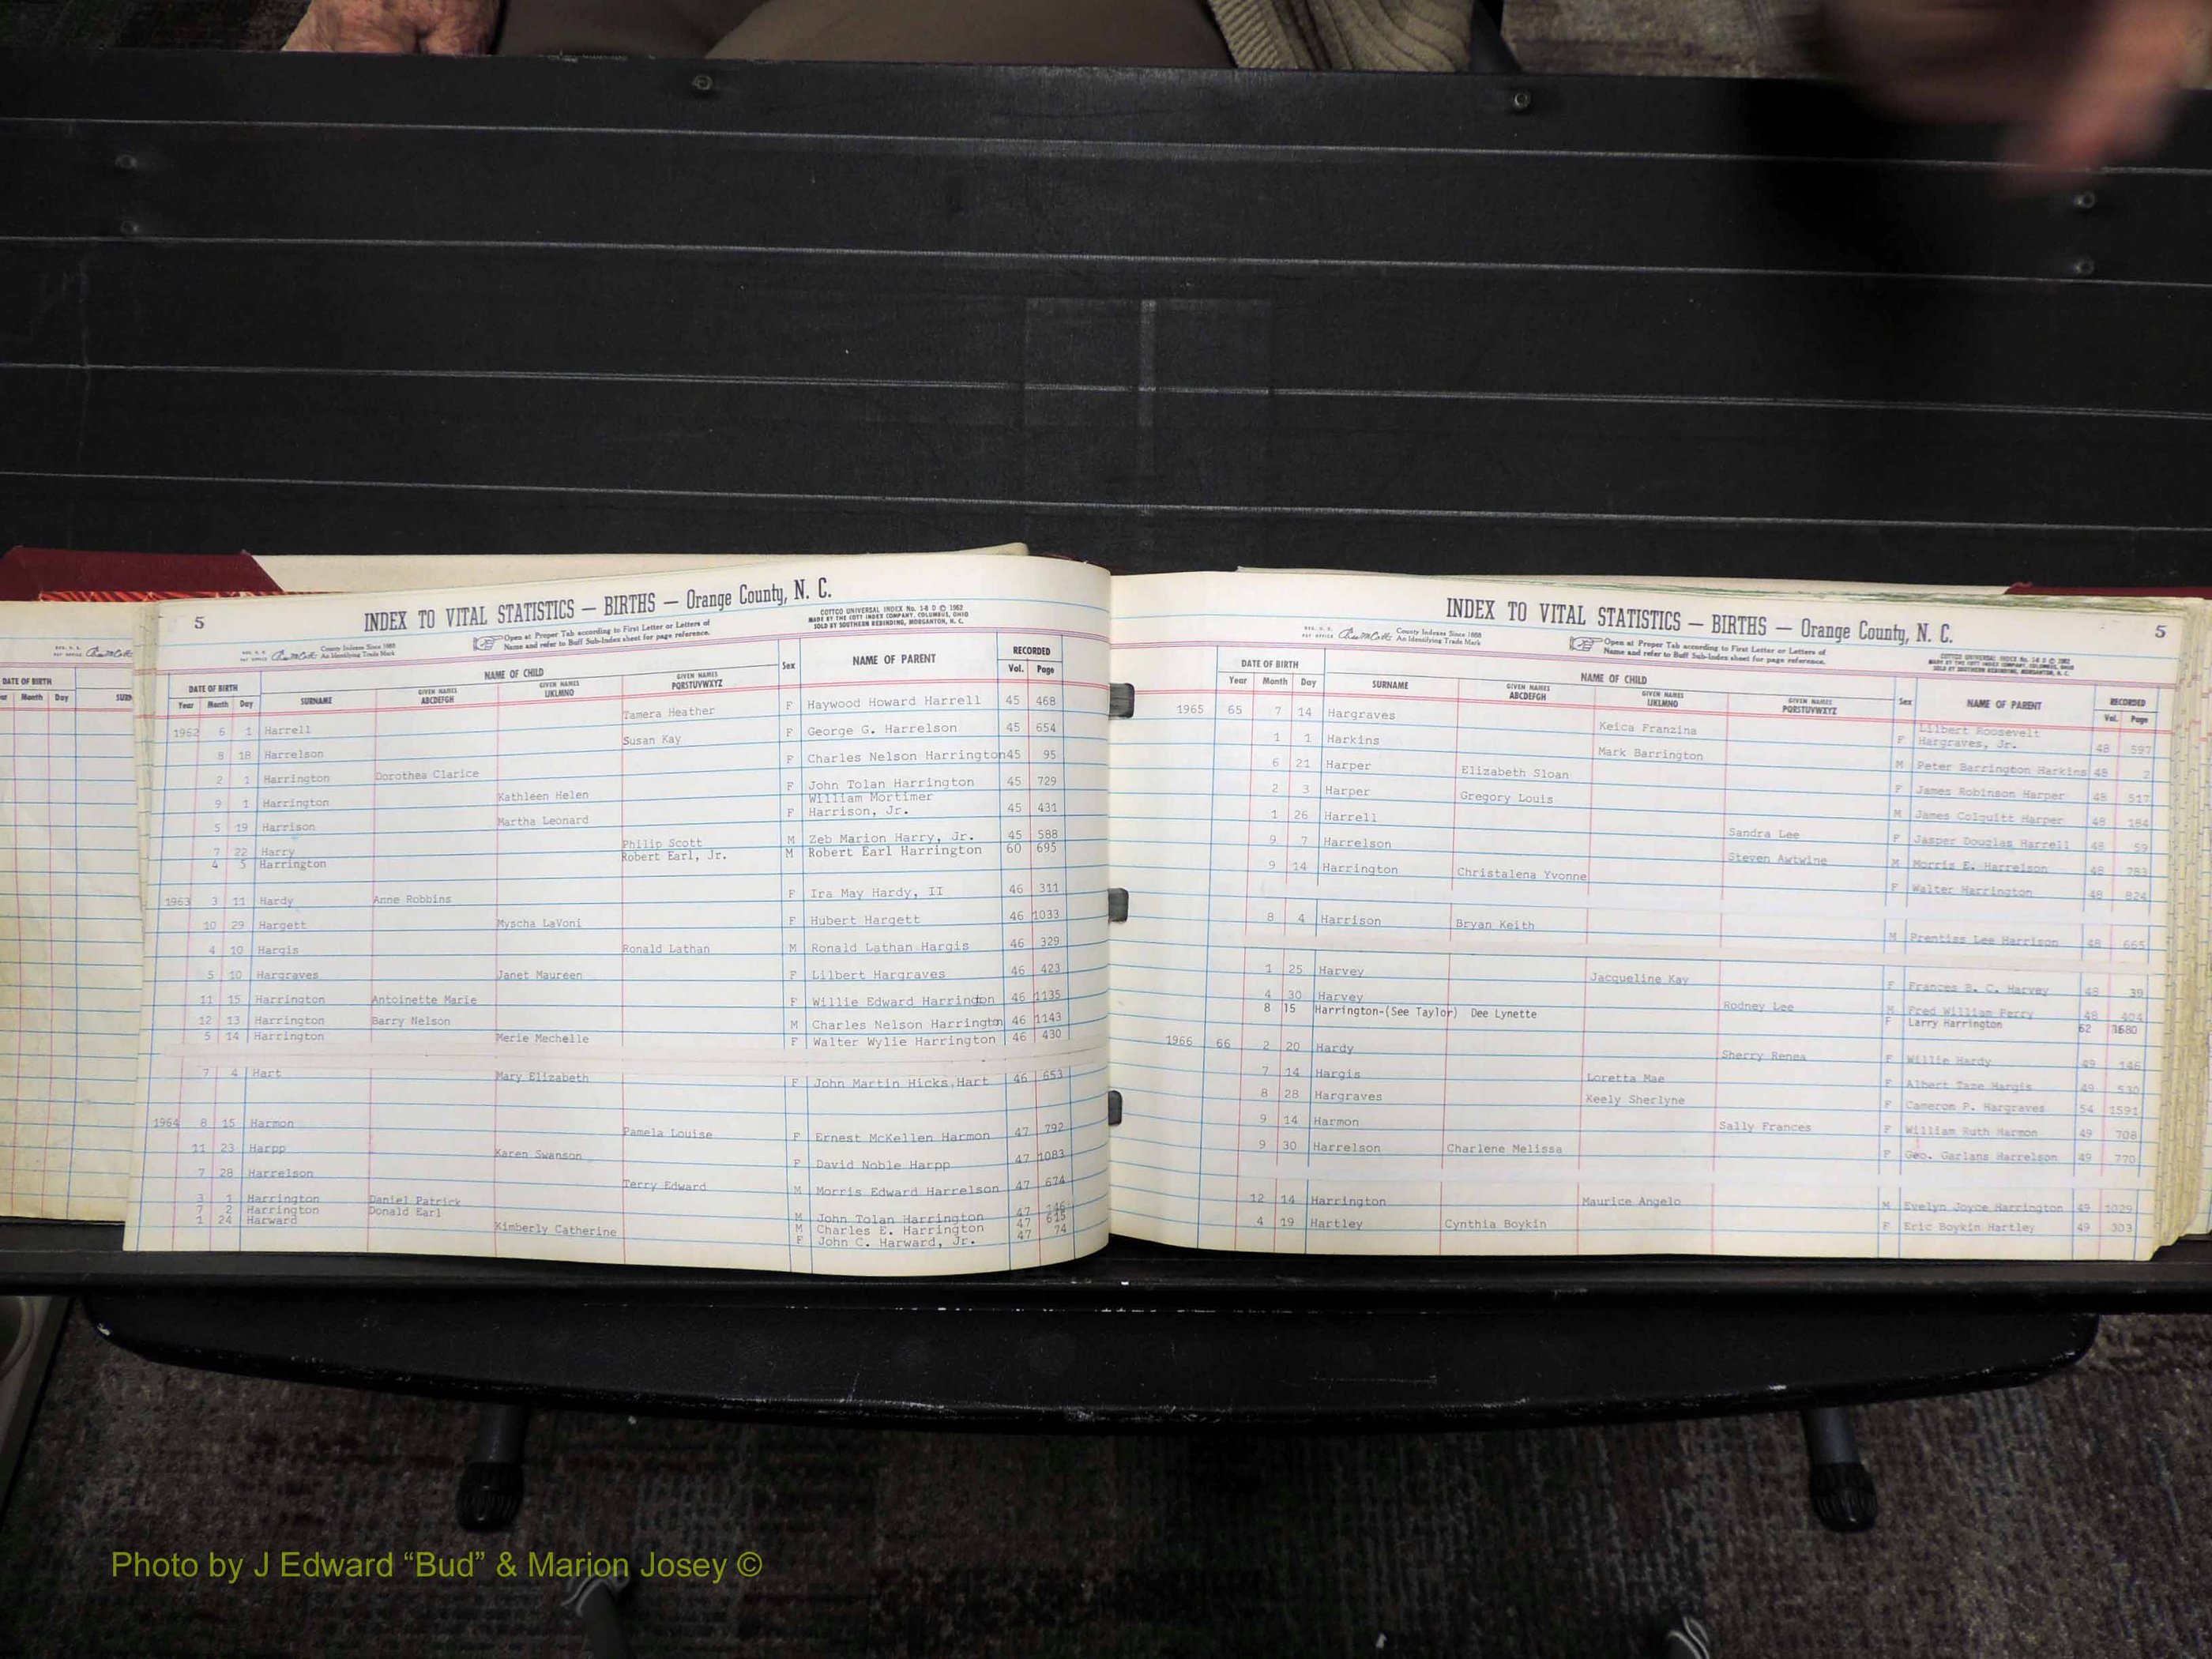 DATE OF BIRTH
Month Day
5
INDEX TO VITAL STATISTICS — BIRTHS — Orange County, N. C.
COTTCO UNIVERSAL INDEX No. 1-8 D © 1962
MADE BY THE COTT INDEX COMPANY, COLUMBUS, OHIO
SOLD BY SOUTHERN REBINDING, MORGANTON, N. C.
County Indexes Since 1888
An Identifying Trade Mark
Open at Proper Tab according to First Letter or Letters of
Name and refer to Buff Sub-Index sheet for page reference.
DATE OF BIRTH NAME OF CHILD Sex NAME OF PARENT RECORDED
Year Month Day SURNAME GIVEN NAMES ABCDEFGH GIVEN NAMES IJKLMNO GIVEN NAMES PQRSTUVWXYZ Vol. Page
1962 6 1 Harrell Tamera Heather F Haywood Howard Harrell 45 468
8 18 Harrelson Susan Kay F George G. Harrelson 45 654
2 1 Harrington Dorothea Clarice F Charles Nelson Harrington 45 95
9 1 Harrington Kathleen Helen F John Tolan Harrington 45 729
5 19 Harrison Martha Leonard F William Mortimer Harrison, Jr. 45 431
7 22 Harry Philip Scott M Zeb Marion Harry, Jr. 45 588
4 5 Harrington Robert Earl, Jr. M Robert Earl Harrington 60 695
1963 3 11 Hardy Anne Robbins F Ira May Hardy, II 46 311
10 29 Hargett Myscha LaVoni F Hubert Hargett 46 1033
4 10 Hargis Ronald Lathan M Ronald Lathan Hargis 46 329
5 10 Hargraves Janet Maureen F Lilbert Hargraves 46 423
11 15 Harrington Antoinette Marie F Willie Edward Harrington 46 1135
12 13 Harrington Barry Nelson M Charles Nelson Harrington 46 1143
5 14 Harrington Merie Mechelle F Walter Wylie Harrington 46 430
7 4 Hart Mary Elizabeth F John Martin Hicks Hart 46 653
1964 8 15 Harmon Pamela Louise F Ernest McKellen Harmon 47 792
11 23 Harpp Karen Swanson F David Noble Harpp 47 1083
7 28 Harrelson Terry Edward M Morris Edward Harrelson 47 674
3 1 Harrington Daniel Patrick M John Tolan Harrington 47
7 2 Harrington Donald Earl M Charles E. Harrington 47 615
1 24 Harward Kimberly Catherine F John C. Harward, Jr. 47 74
INDEX TO VITAL STATISTICS — BIRTHS — Orange County, N. C.
5
County Indexes Since 1888
An Identifying Trade Mark
Open at Proper Tab according to First Letter or Letters of
Name and refer to Buff Sub-Index sheet for page reference.
COTTCO UNIVERSAL INDEX No. 1-8 D © 1962
MADE BY THE COTT INDEX COMPANY, COLUMBUS, OHIO
SOLD BY SOUTHERN REBINDING, MORGANTON, N. C.
DATE OF BIRTH NAME OF CHILD Sex NAME OF PARENT RECORDED
Year Month Day SURNAME GIVEN NAMES ABCDEFGH GIVEN NAMES IJKLMNO GIVEN NAMES PQRSTUVWXYZ Vol. Page
1965 65 7 14 Hargraves Keica Franzina F Lilbert Roosevelt Hargraves, Jr. 48 597
1 1 Harkins Mark Barrington M Peter Barrington Harkins 48 2
6 21 Harper Elizabeth Sloan F James Robinson Harper 48 517
2 3 Harper Gregory Louis M James Colquitt Harper 48 184
1 26 Harrell Sandra Lee F Jasper Douglas Harrell 48 59
9 7 Harrelson Steven Awtwine M Morris E. Harrelson 48 783
9 14 Harrington Christalena Yvonne F Walter Harrington 48 824
8 4 Harrison Bryan Keith M Prentiss Lee Harrison 48 665
1 25 Harvey Jacqueline Kay F Frances B. C. Harvey 48 39
4 30 Harvey Rodney Lee M Fred William Perry 48 404
8 15 Harrington-(See Taylor) Dee Lynette F Larry Harrington 62
1966 66 2 20 Hardy Sherry Renea F Willie Hardy 49 146
7 14 Hargis Loretta Mae F Albert Tane Hargis 49 530
8 28 Hargraves Keely Sherlyne F Cameron P. Hargraves 54 1591
9 14 Harmon Sally Frances F William Ruth Harmon 49 708
9 30 Harrelson Charlene Melissa F Geo. Garlans Harrelson 49 770
12 14 Harrington Maurice Angelo M Evelyn Joyce Harrington 49 1029
4 19 Hartley Cynthia Boykin F Eric Boykin Hartley 49 303
Photo by J Edward “Bud” & Marion Josey ©